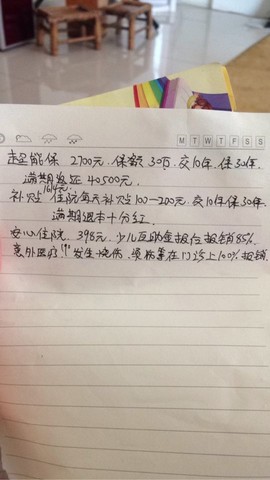 M T W T F S S
超能保 2700元.保额30万.交10年.保30年.
满期返还40500元.
1614元
补贴 住院每天补贴100—200元.交10年保30年.
满期退本十分红.
安心住院.398元.少儿互助金报后报销85%.
意外医疗 发生烧伤.烫伤等在门诊上100%报销.